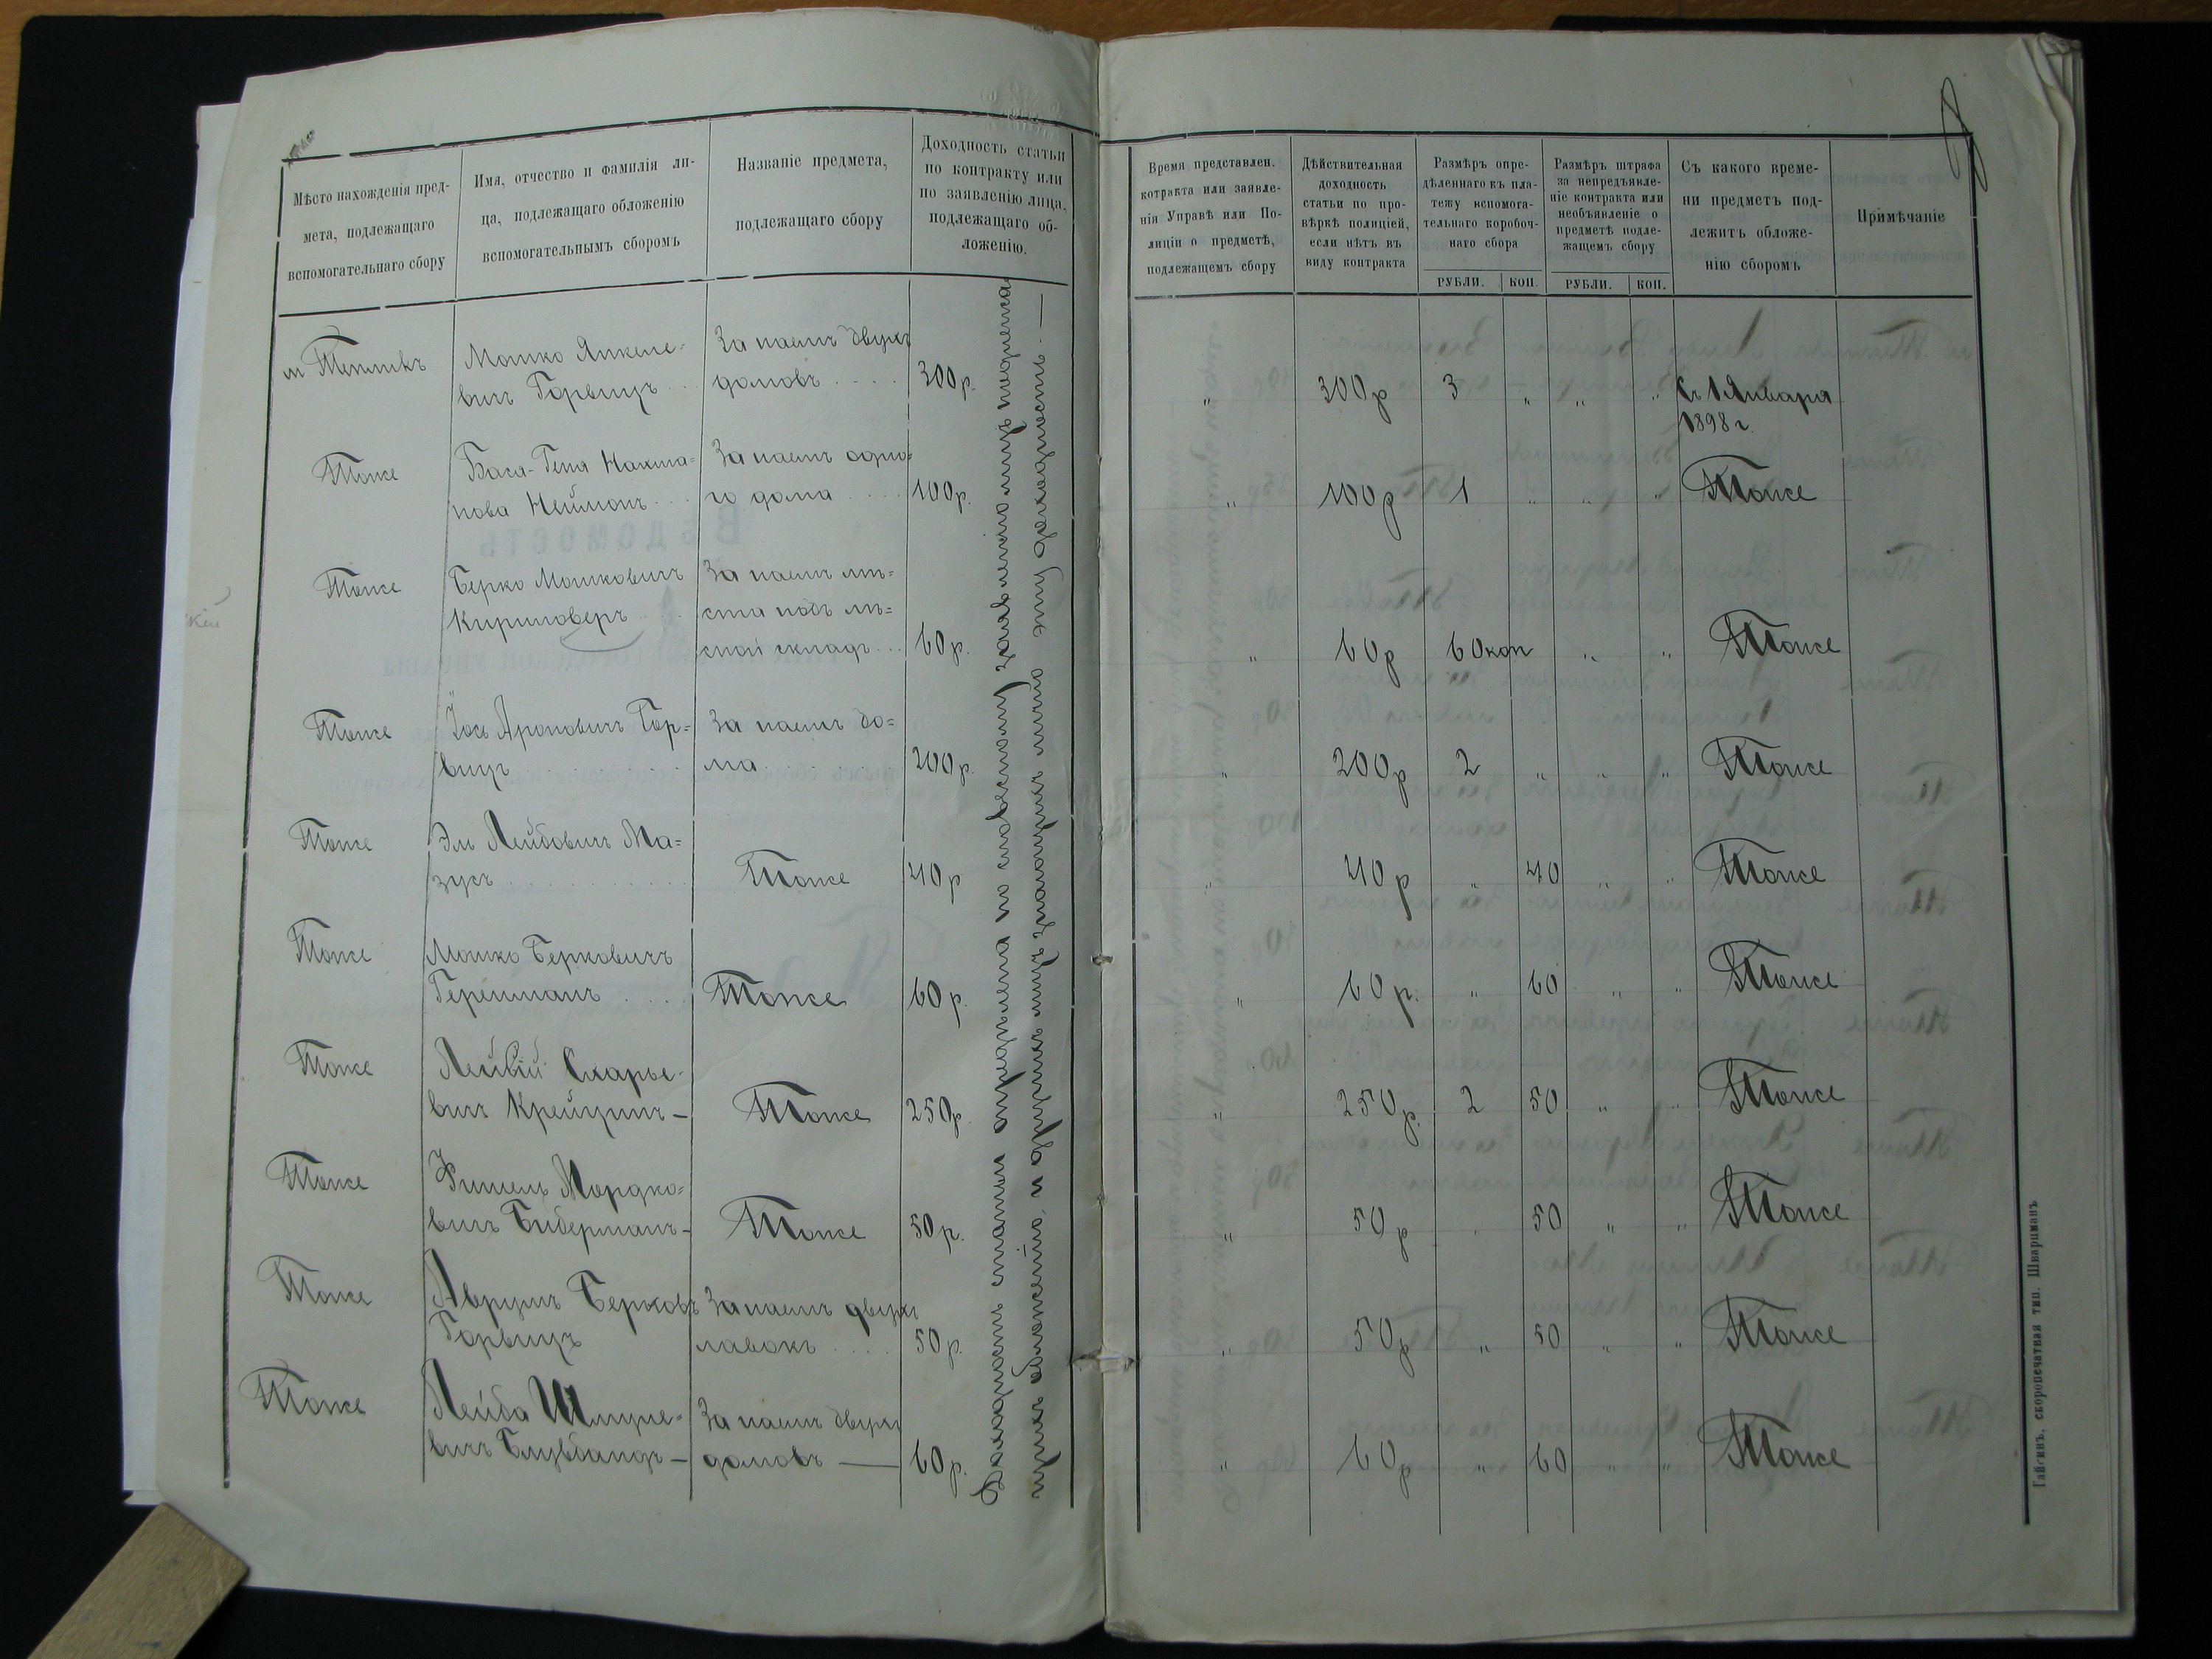 Мѣсто нахожденія пред-
мета, подлежащаго
вспомогательнаго сбору
Имя, отчество и фамилія ли-
ца, подлежащаго обложенію
вспомогательнымъ сборомъ
Названіе предмета,
подлежащаго сбору
Доходность статьи
по контракту или
по заявленію лица,
подлежащаго об-
ложенію.
м Тепликъ
Мошко Янкеле-
вичъ Горвицъ
За наемъ двухъ
домовъ
300 р.
Тоже
Бася-Геня Нахма-
нова Нейманъ
За наемъ одно-
го дома
100 р.
Тоже
Берко Мошковичъ
Кириловеръ
За наемъ мѣ-
ста подъ лѣ-
сной складъ
60 р.
Тоже
Іось Ароновичъ Гор-
вицъ
За наемъ до-
ма
200 р.
Тоже
Эль Лейбовичъ Ма-
зусъ
Тоже
40 р
Тоже
Мошко Берковичъ
Гершманъ
Тоже
60 р.
Тоже
Лейвій
вичъ Крейцинъ
Тоже
250 р.
Тоже
Фишель Мордко-
вичъ Биберманъ
Тоже
50 р.
Тоже
Аврумъ Берковъ
Горвицъ
За наемъ двухъ
лавокъ
50 р.
Тоже
Лейба Шмуле-
вичъ
За наемъ двухъ
домовъ
60 р.
Доходность статьи опредѣлена по словесному заявленію лицъ подлежа-
щихъ обложенію, и другихъ лицъ знающихъ лично эту доходность.
Время представлен.
котракта или заявле-
нія Управѣ или По-
лиціи о предметѣ,
подлежащемъ сбору
Дѣйствительная
доходность
статьи по про-
вѣркѣ полиціей,
если нѣтъ въ
виду контракта
Размѣръ опре-
дѣленнаго къ пла-
тежу вспомога-
тельнаго коробоч-
наго сбора
РУБЛИ. КОП.
Размѣръ штрафа
за непредъявле-
ніе контракта или
необъявленіе о
предметѣ подле-
жащемъ сбору
РУБЛИ. КОП.
Съ какого време-
ни предметъ под-
лежитъ обложе-
нію сборомъ
Примѣчаніе
" 300 р 3 " " " Съ 1 Января
1898 г.
" 100 р 1 " " " Тоже
" 60 р 60 коп " " Тоже
" 200 р 2 " " " Тоже
" 40 р " 40 " " Тоже
" 60 р. " 60 " " Тоже
250 р. 2 50 " " Тоже
" 50 р " 50 " " Тоже
" 50 р " 50 " " Тоже
" 60 р " 60 " " Тоже
Гайсинъ, скоропечатная тип. Шварцманъ